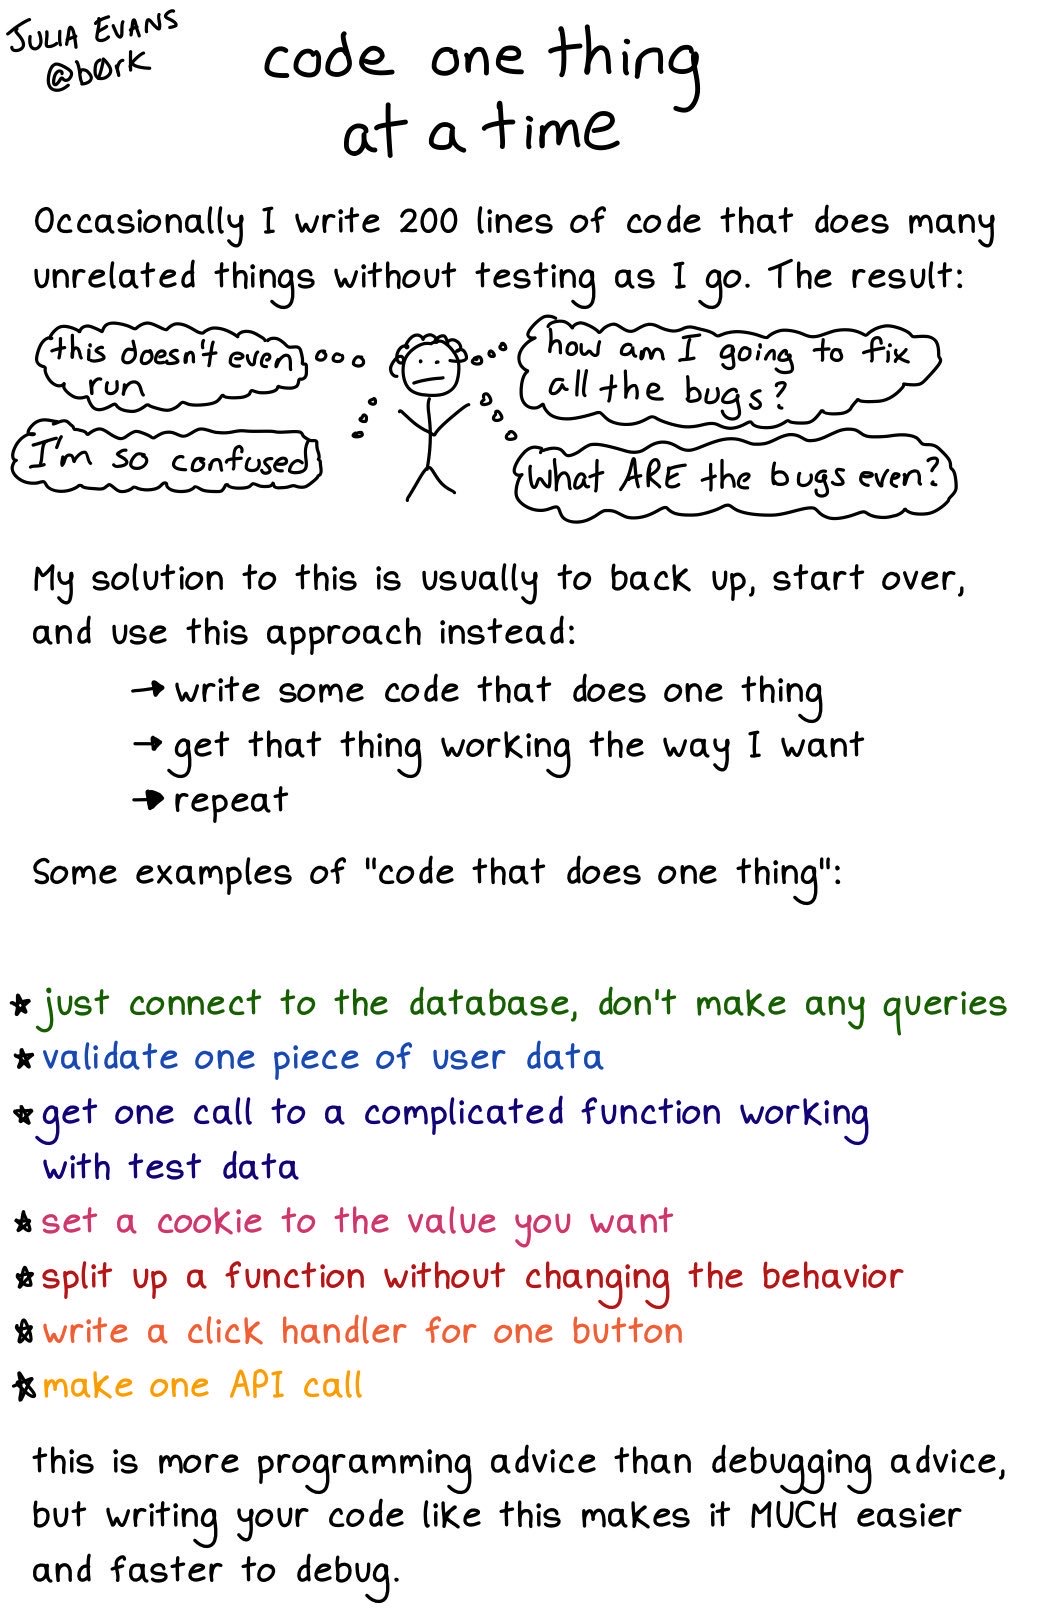 JULIA EVANS
@b0rk
code one thing
at a time
Occasionally I write 200 lines of code that does many
unrelated things without testing as I go. The result:
this doesn't even
run
I'm so confused
how am I going to fix
all the bugs?
what ARE the bugs even?
My solution to this is usually to back up, start over,
and use this approach instead:
→ write some code that does one thing
→ get that thing working the way I want
→ repeat
Some examples of "code that does one thing":
★ just connect to the database, don't make any queries
★ validate one piece of user data
★ get one call to a complicated function working
with test data
★ set a cookie to the value you want
★ split up a function without changing the behavior
★ write a click handler for one button
★ make one API call
this is more programming advice than debugging advice,
but writing your code like this makes it MUCH easier
and faster to debug.